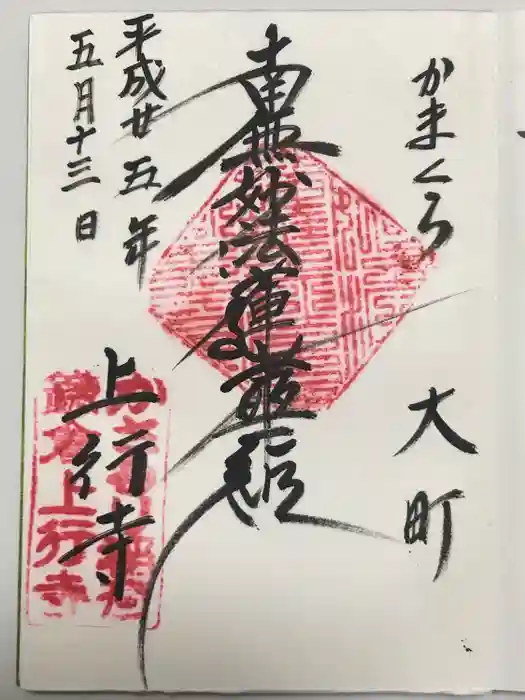 かまくら
大町
南無妙法蓮華経
平成廿五年
五月十三日
上行寺
上行寺